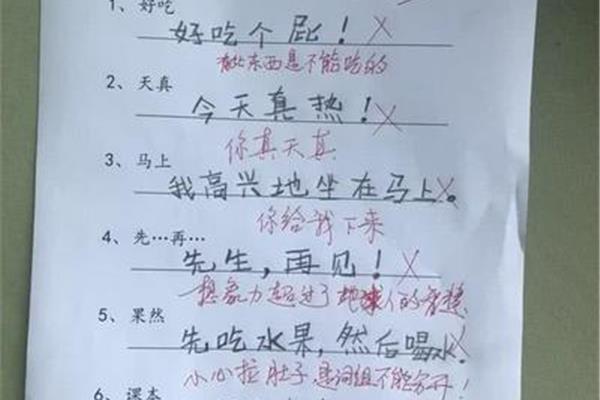 1、好吃
好吃个屁！
有些东西是不能吃的
2、天真
今天真热！
你真天真
3、马上
我高兴地坐在马上。
你给我下来
4、先…再…
先生，再见！
想象力超过了地球人的智慧
5、果然
先吃水果，然后喝水.
小心拉肚子 是词组不能分开！
6、课本